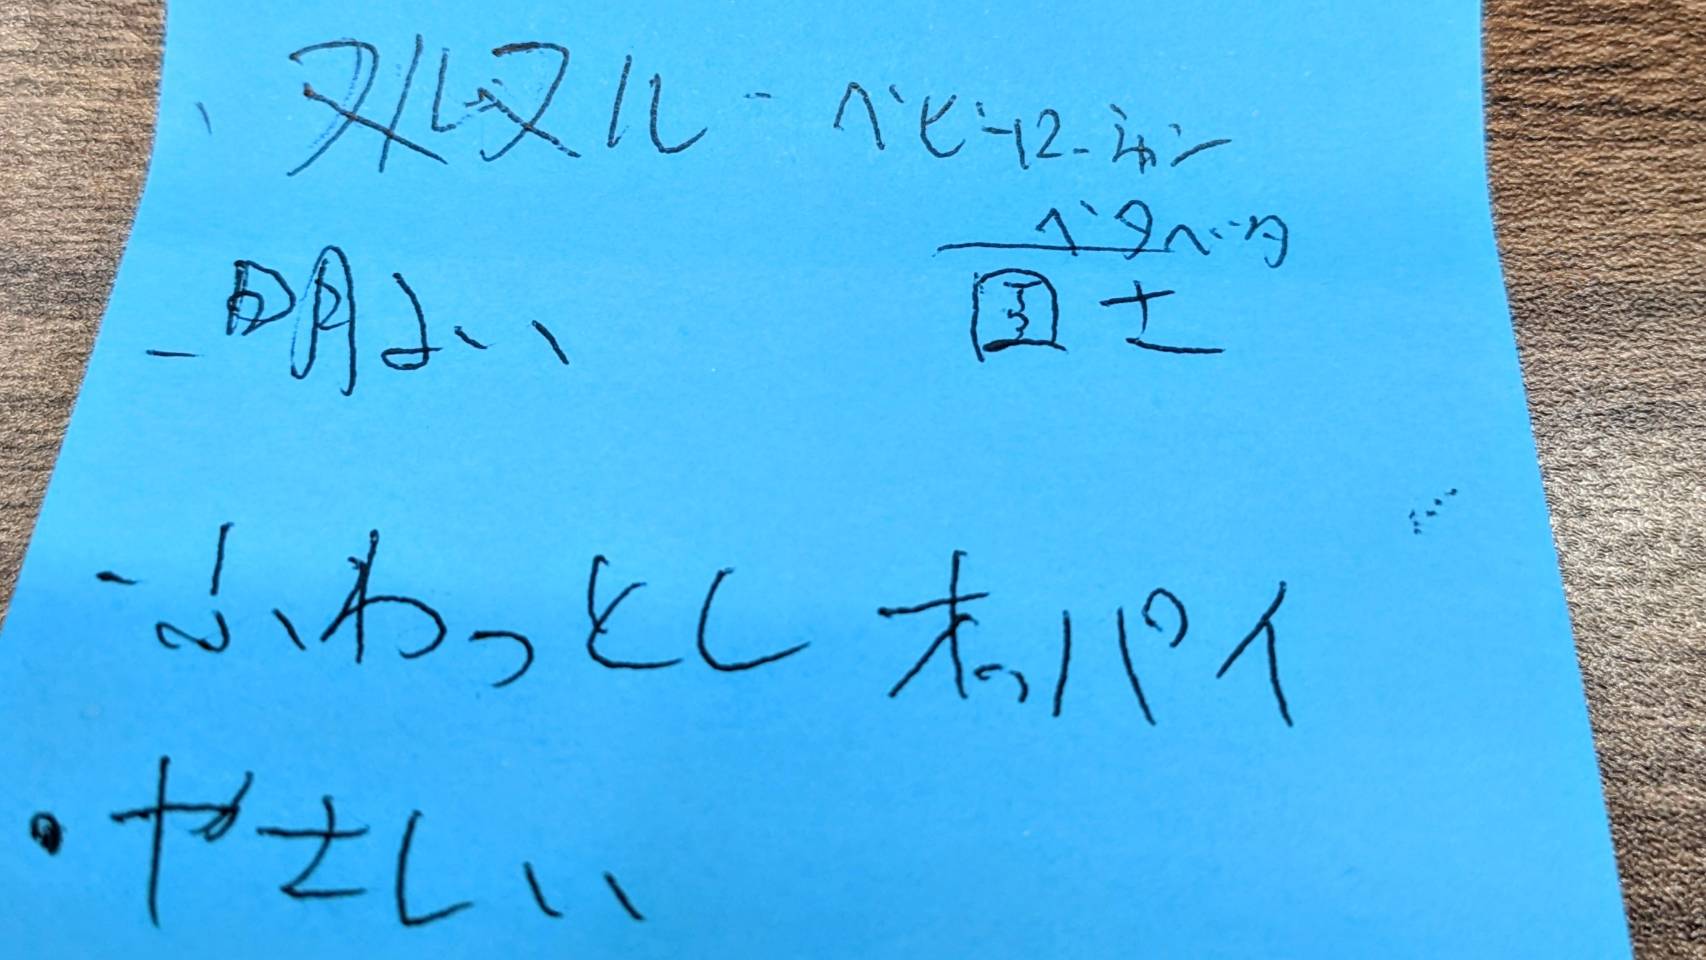 ヌルヌル - ベビーローション
ベタベタ
- 明るい 固士
- ふわっとし オッパイ
・やさしい